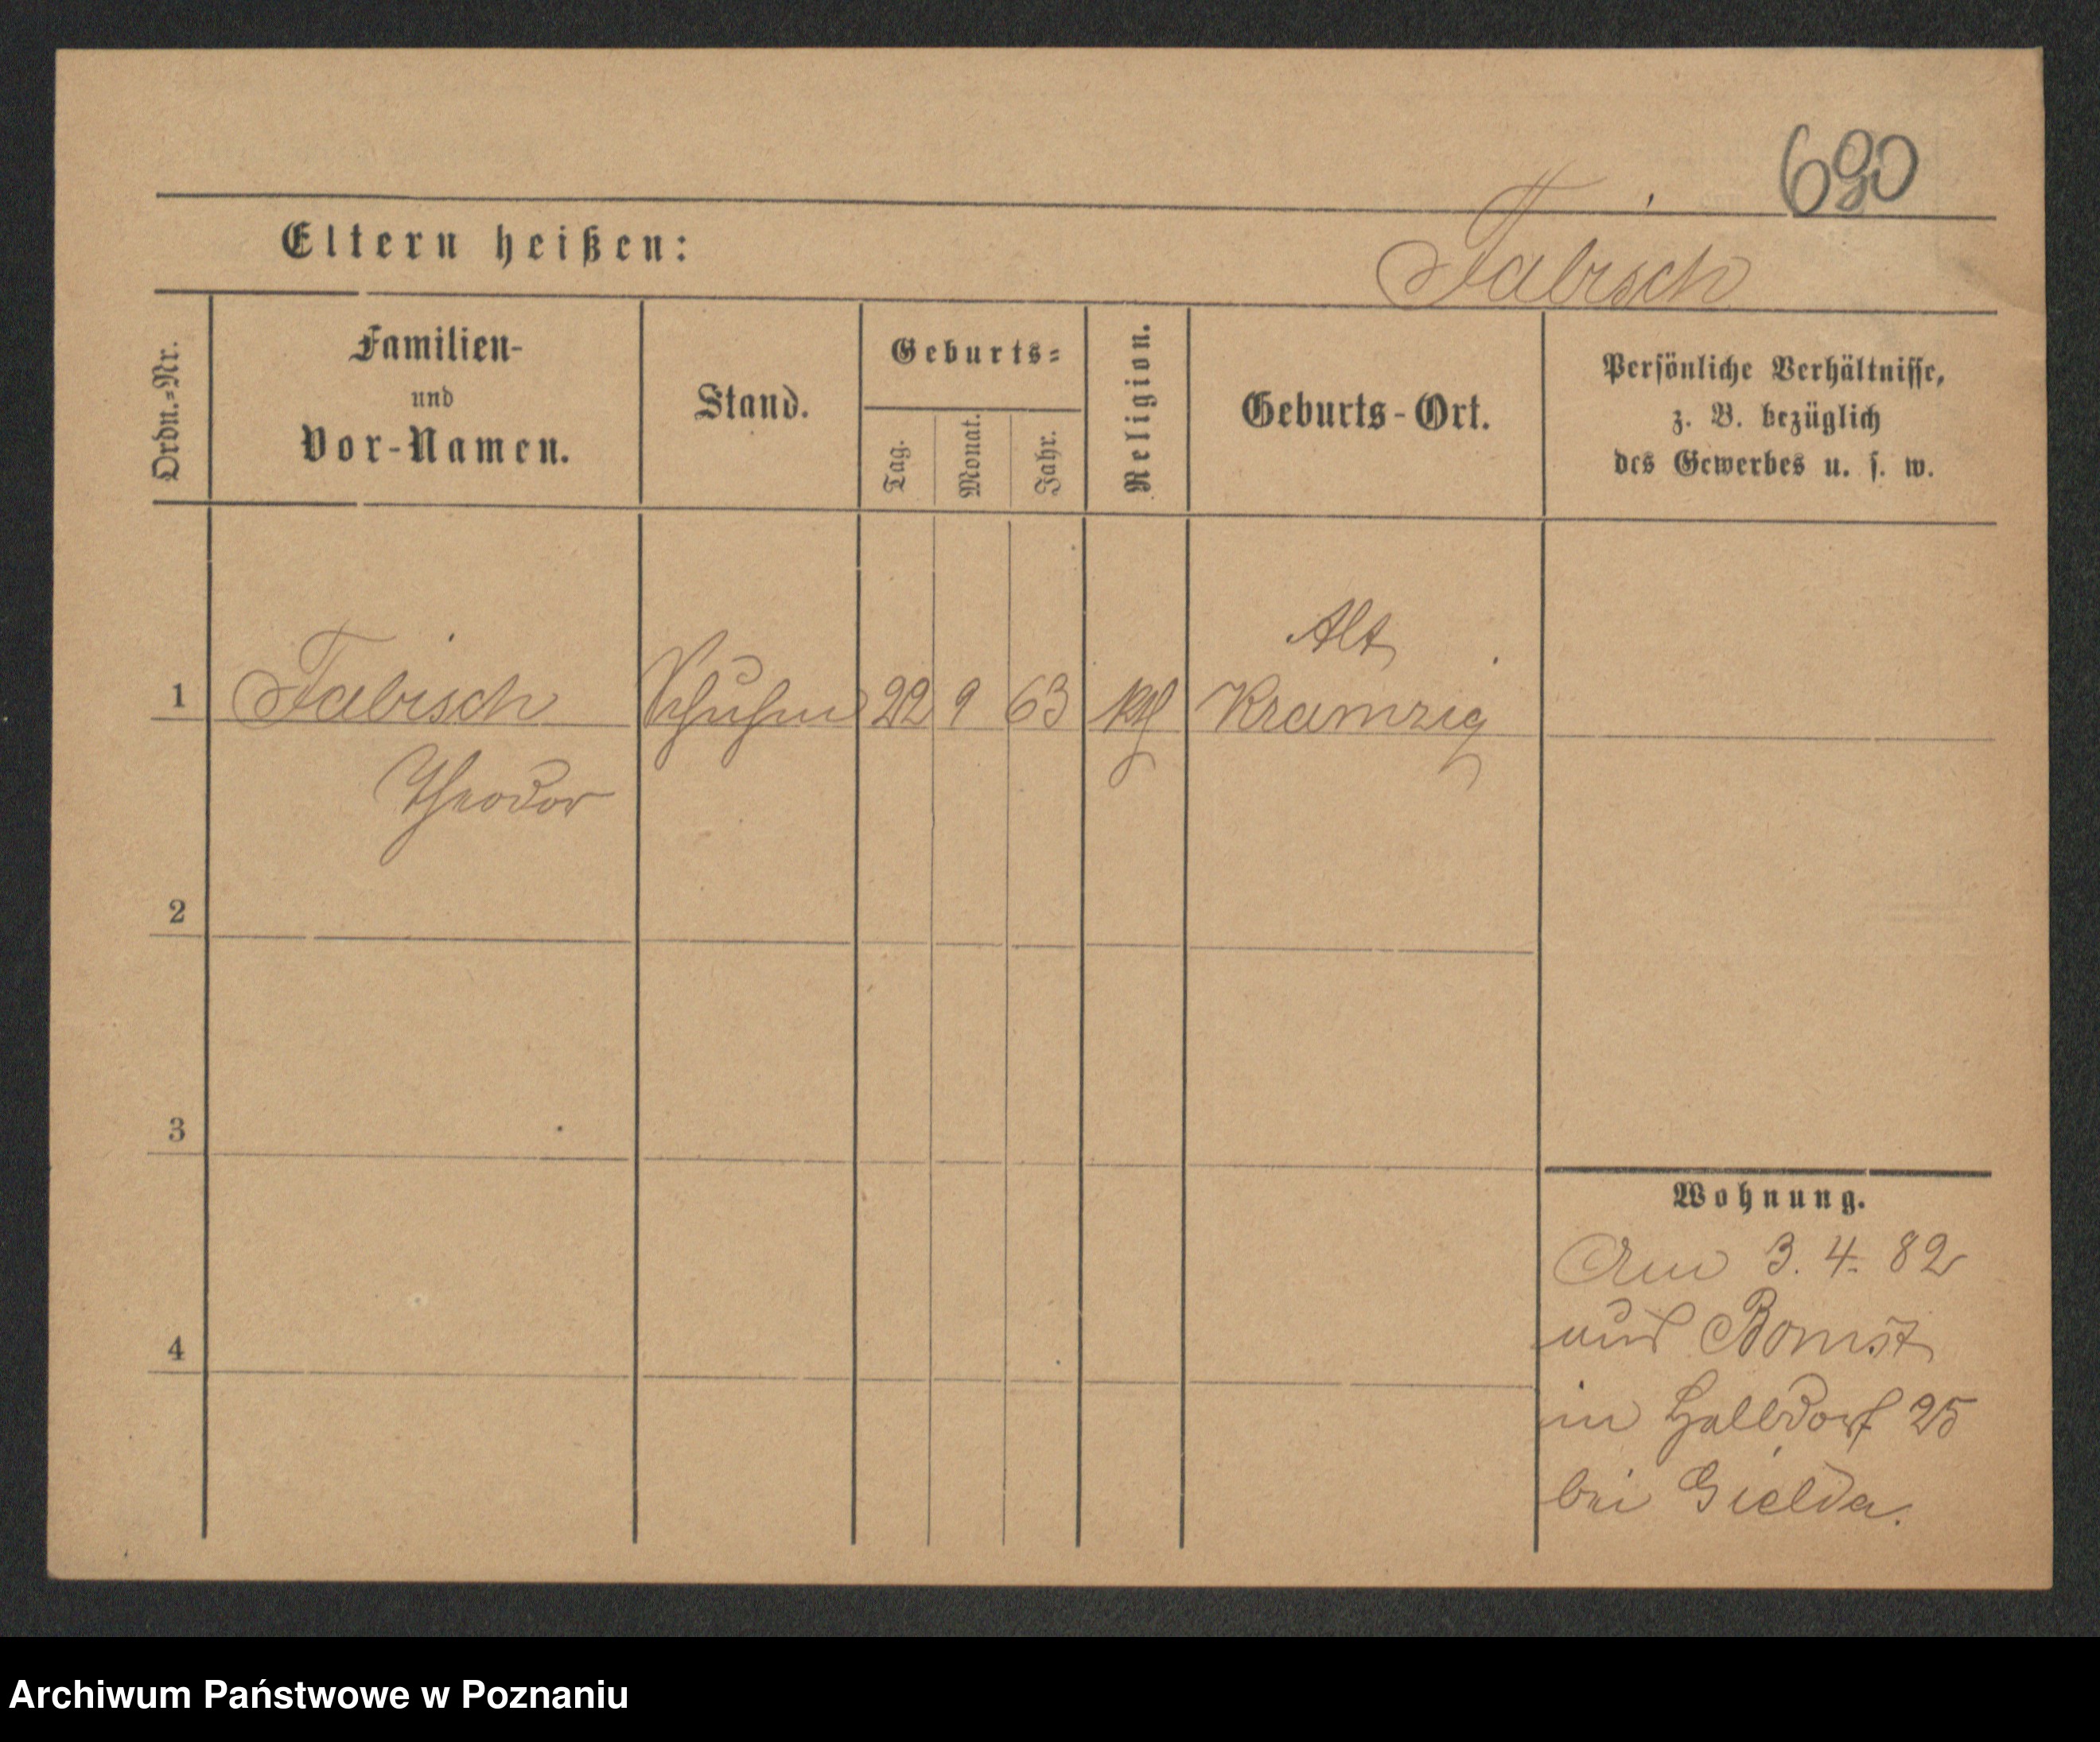 690
Eltern heißen:
Fabisch
Ordn.-Nr.
Familien-
und
Vor-Namen.
Stand.
Geburts-
Tag.
Monat.
Jahr.
Religion.
Geburts-Ort.
Persönliche Verhältnisse,
z. B. bezüglich
des Gewerbes u. s. w.
Alt
1 Fabisch Schuhm 22 9 63 kth Kramzig
Theodor
2
3
4
Wohnung.
Am 3. 4. 82
aus Bomst
in Halbdorf 25
bei Gielda.
Archiwum Państwowe w Poznaniu